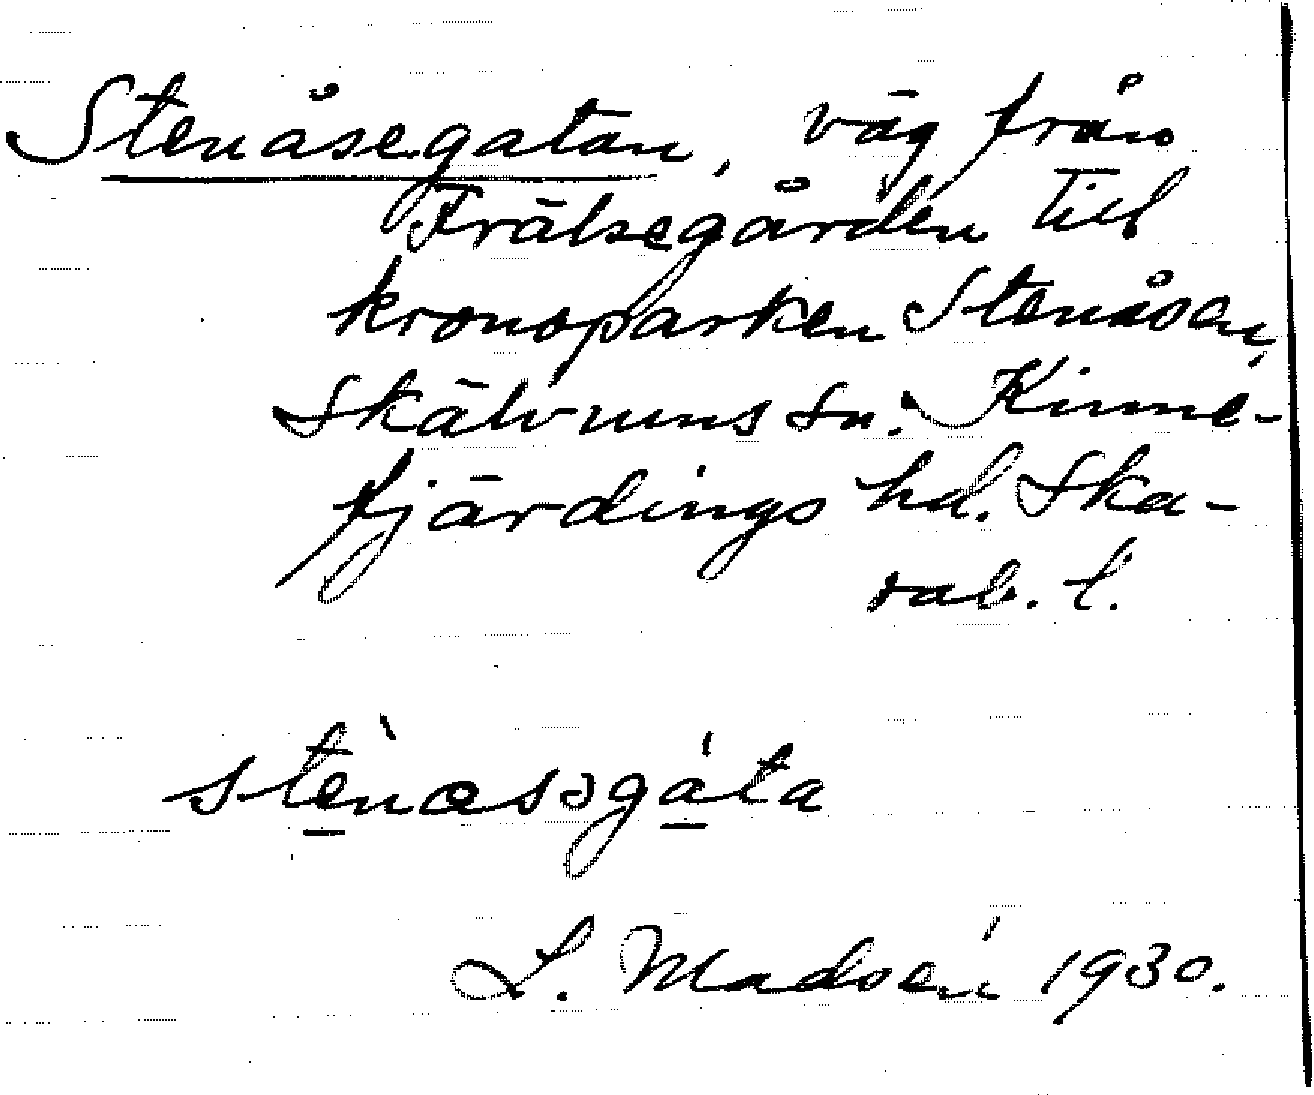 Stenåsegatan, väg från
Frälsegården till
kronoparken Stenåsen,
Skälvums sn. Kinne-
fjärdings hd. Ska-
rab. l.
L. Madsén 1930.